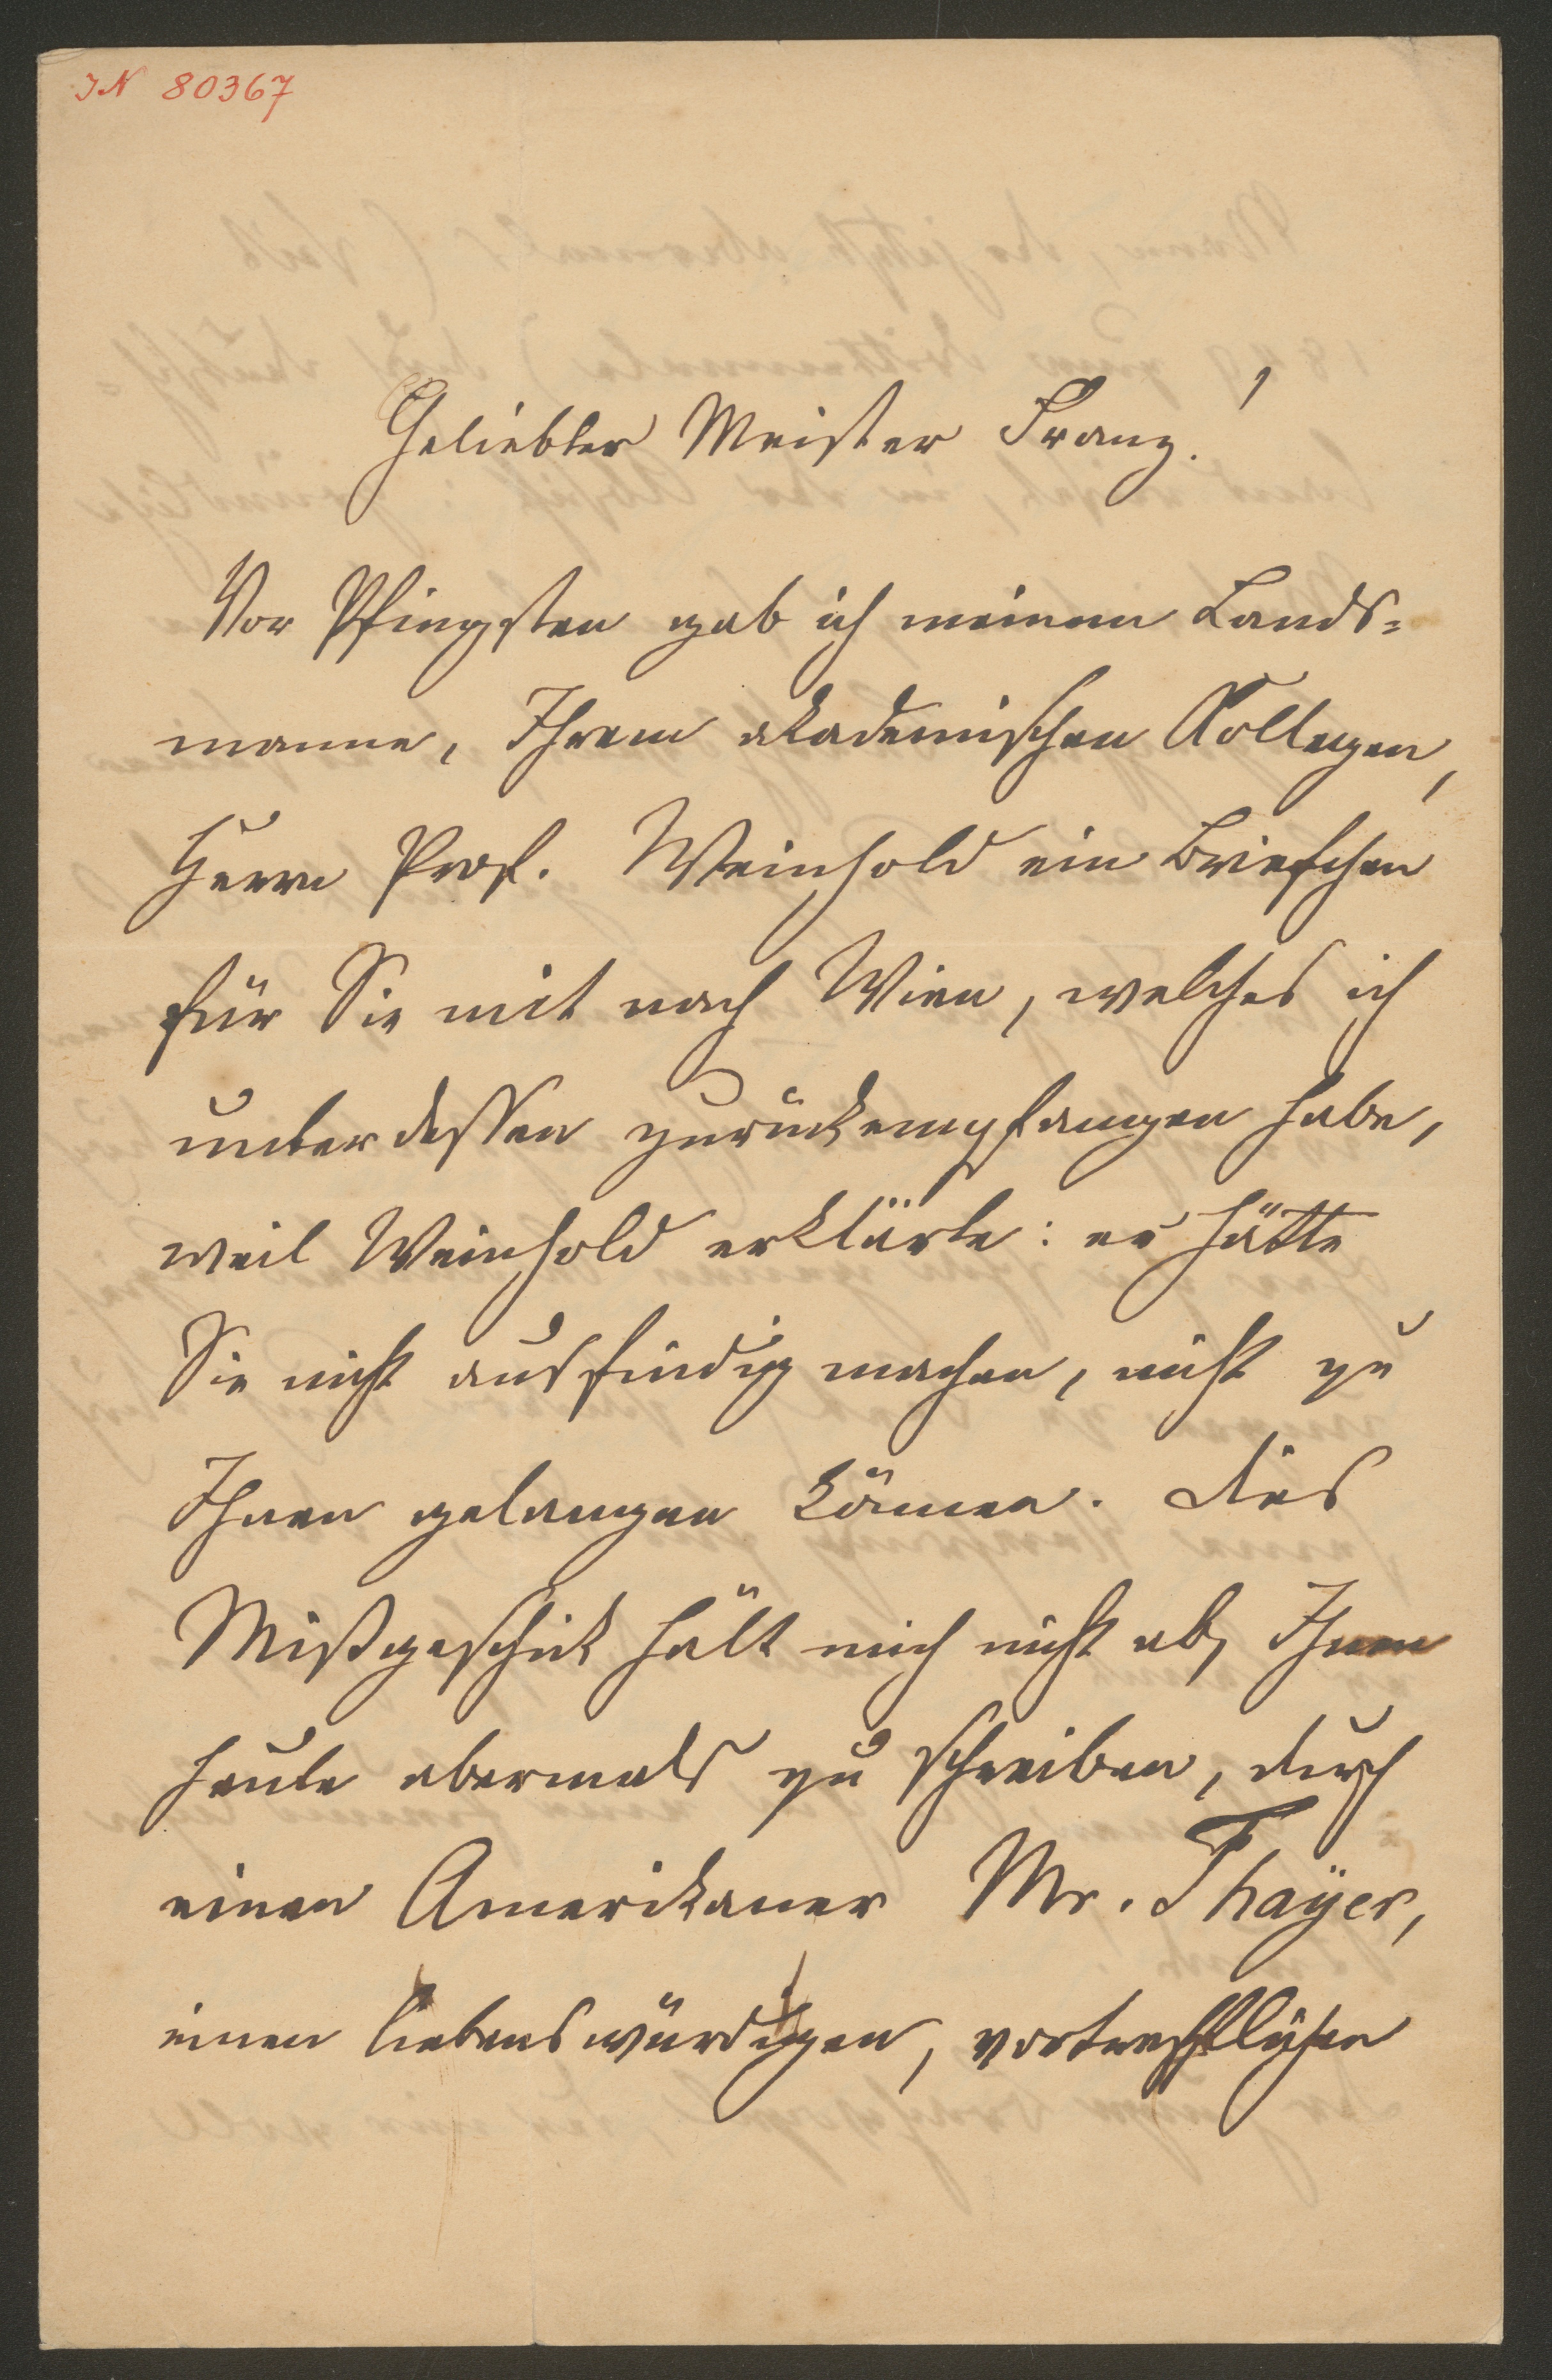 IN 80367
Geliebter Meister Franz!
Vor Pfingsten gab ich meinem Lands=
manne, Ihrem akademischen Kollegen,
Herrn Prof. Weinhold ein Briefchen
für Sie mit nach Wien, welches ich
unterdessen zurückempfangen habe,
weil Weinhold erklärte: er hätte
Sie nicht ausfindig machen, nicht zu
Ihnen gelangen können. Dies
Mißgeschick hält mich nicht ab, Ihnen
heute abermals zu schreiben, durch
einen Amerikaner Mr. Thaÿer,
einen liebenswürdigen, vortrefflichen